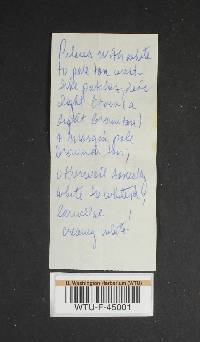 Pileus with white
to pale tan wart
like patches, disc
light brown (a
light brown tan)
margin pale
brownish tan,
otherwise
white to whitish,
creamy white
U. Washington Herbarium (WTU)
WTU-F-45001